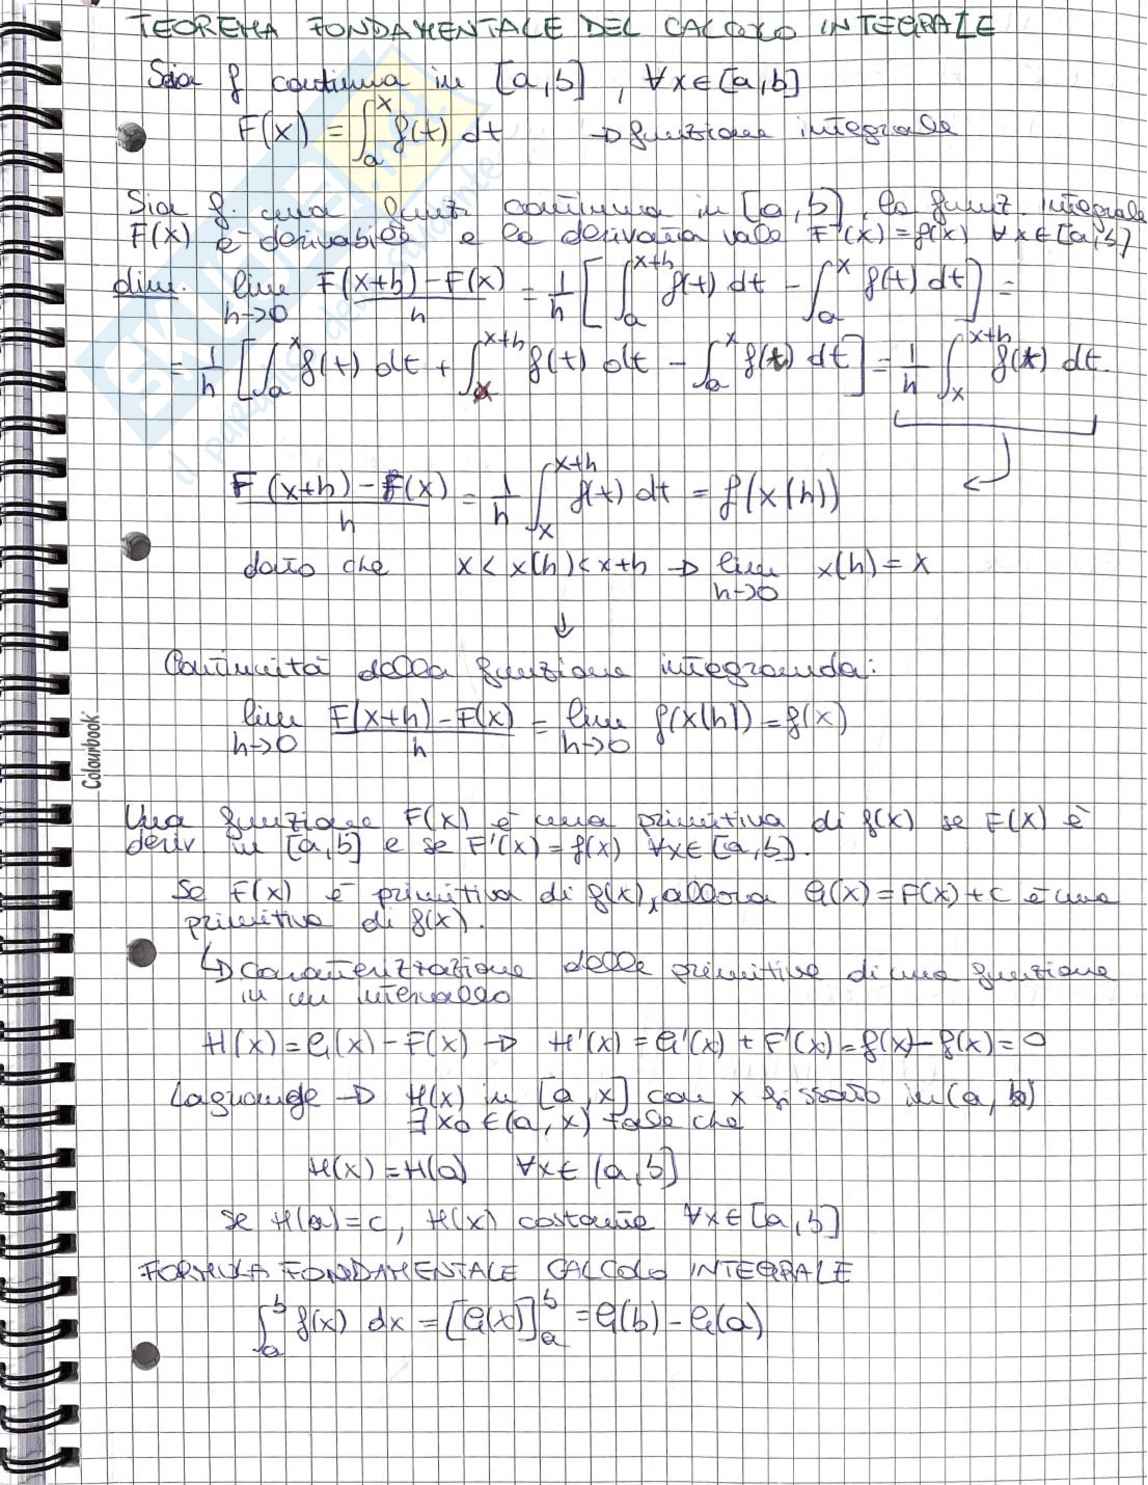 TEOREMA FONDAMENTALE DEL CALCOLO INTEGRALE
Sia f continua in [a,b] , ∀x∈[a,b]
F(x) = ∫_a^x f(t) dt → funzione integrale
Sia f. una funz. continua in [a,b], la funz. integrale
F(x) è derivabile e la derivata vale F'(x) = f(x) ∀x∈[a,b]
dim. lim_{h→0} (F(x+h) - F(x))/h = 1/h [∫_a^{x+h} f(t) dt - ∫_a^x f(t) dt] =
= 1/h [∫_a^x f(t) dt + ∫_x^{x+h} f(t) dt - ∫_a^x f(t) dt] = 1/h ∫_x^{x+h} f(t) dt.
(F(x+h) - F(x))/h = 1/h ∫_x^{x+h} f(t) dt = f(x(h))
dato che x < x(h) < x+h → lim_{h→0} x(h) = x
↓
Continuità della funzione integranda:
lim_{h→0} (F(x+h) - F(x))/h = lim_{h→0} f(x(h)) = f(x)
Colourbook
Una funzione F(x) è una primitiva di f(x) se F(x) è
deriv in [a,b] e se F'(x) = f(x) ∀x∈[a,b].
Se F(x) è primitiva di f(x), allora G(x) = F(x) + c è una
primitiva di f(x).
↳ Caratterizzazione delle primitive di una funzione
in un intervallo
H(x) = G(x) - F(x) → H'(x) = G'(x) + F'(x) = f(x) - f(x) = 0
Lagrange → H(x) in [a,x] con x fissato in (a, b)
∃ x0 ∈ (a, x) tale che
H(x) = H(a) ∀x∈ [a,b]
se H(a) = c, H(x) costante ∀x∈[a,b]
FORMULA FONDAMENTALE CALCOLO INTEGRALE
∫_a^b f(x) dx = [G(x)]_a^b = G(b) - G(a)